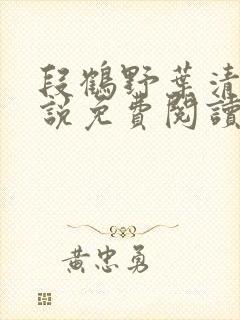 段鶴野葉清
說免費閱讀
黃忠勇